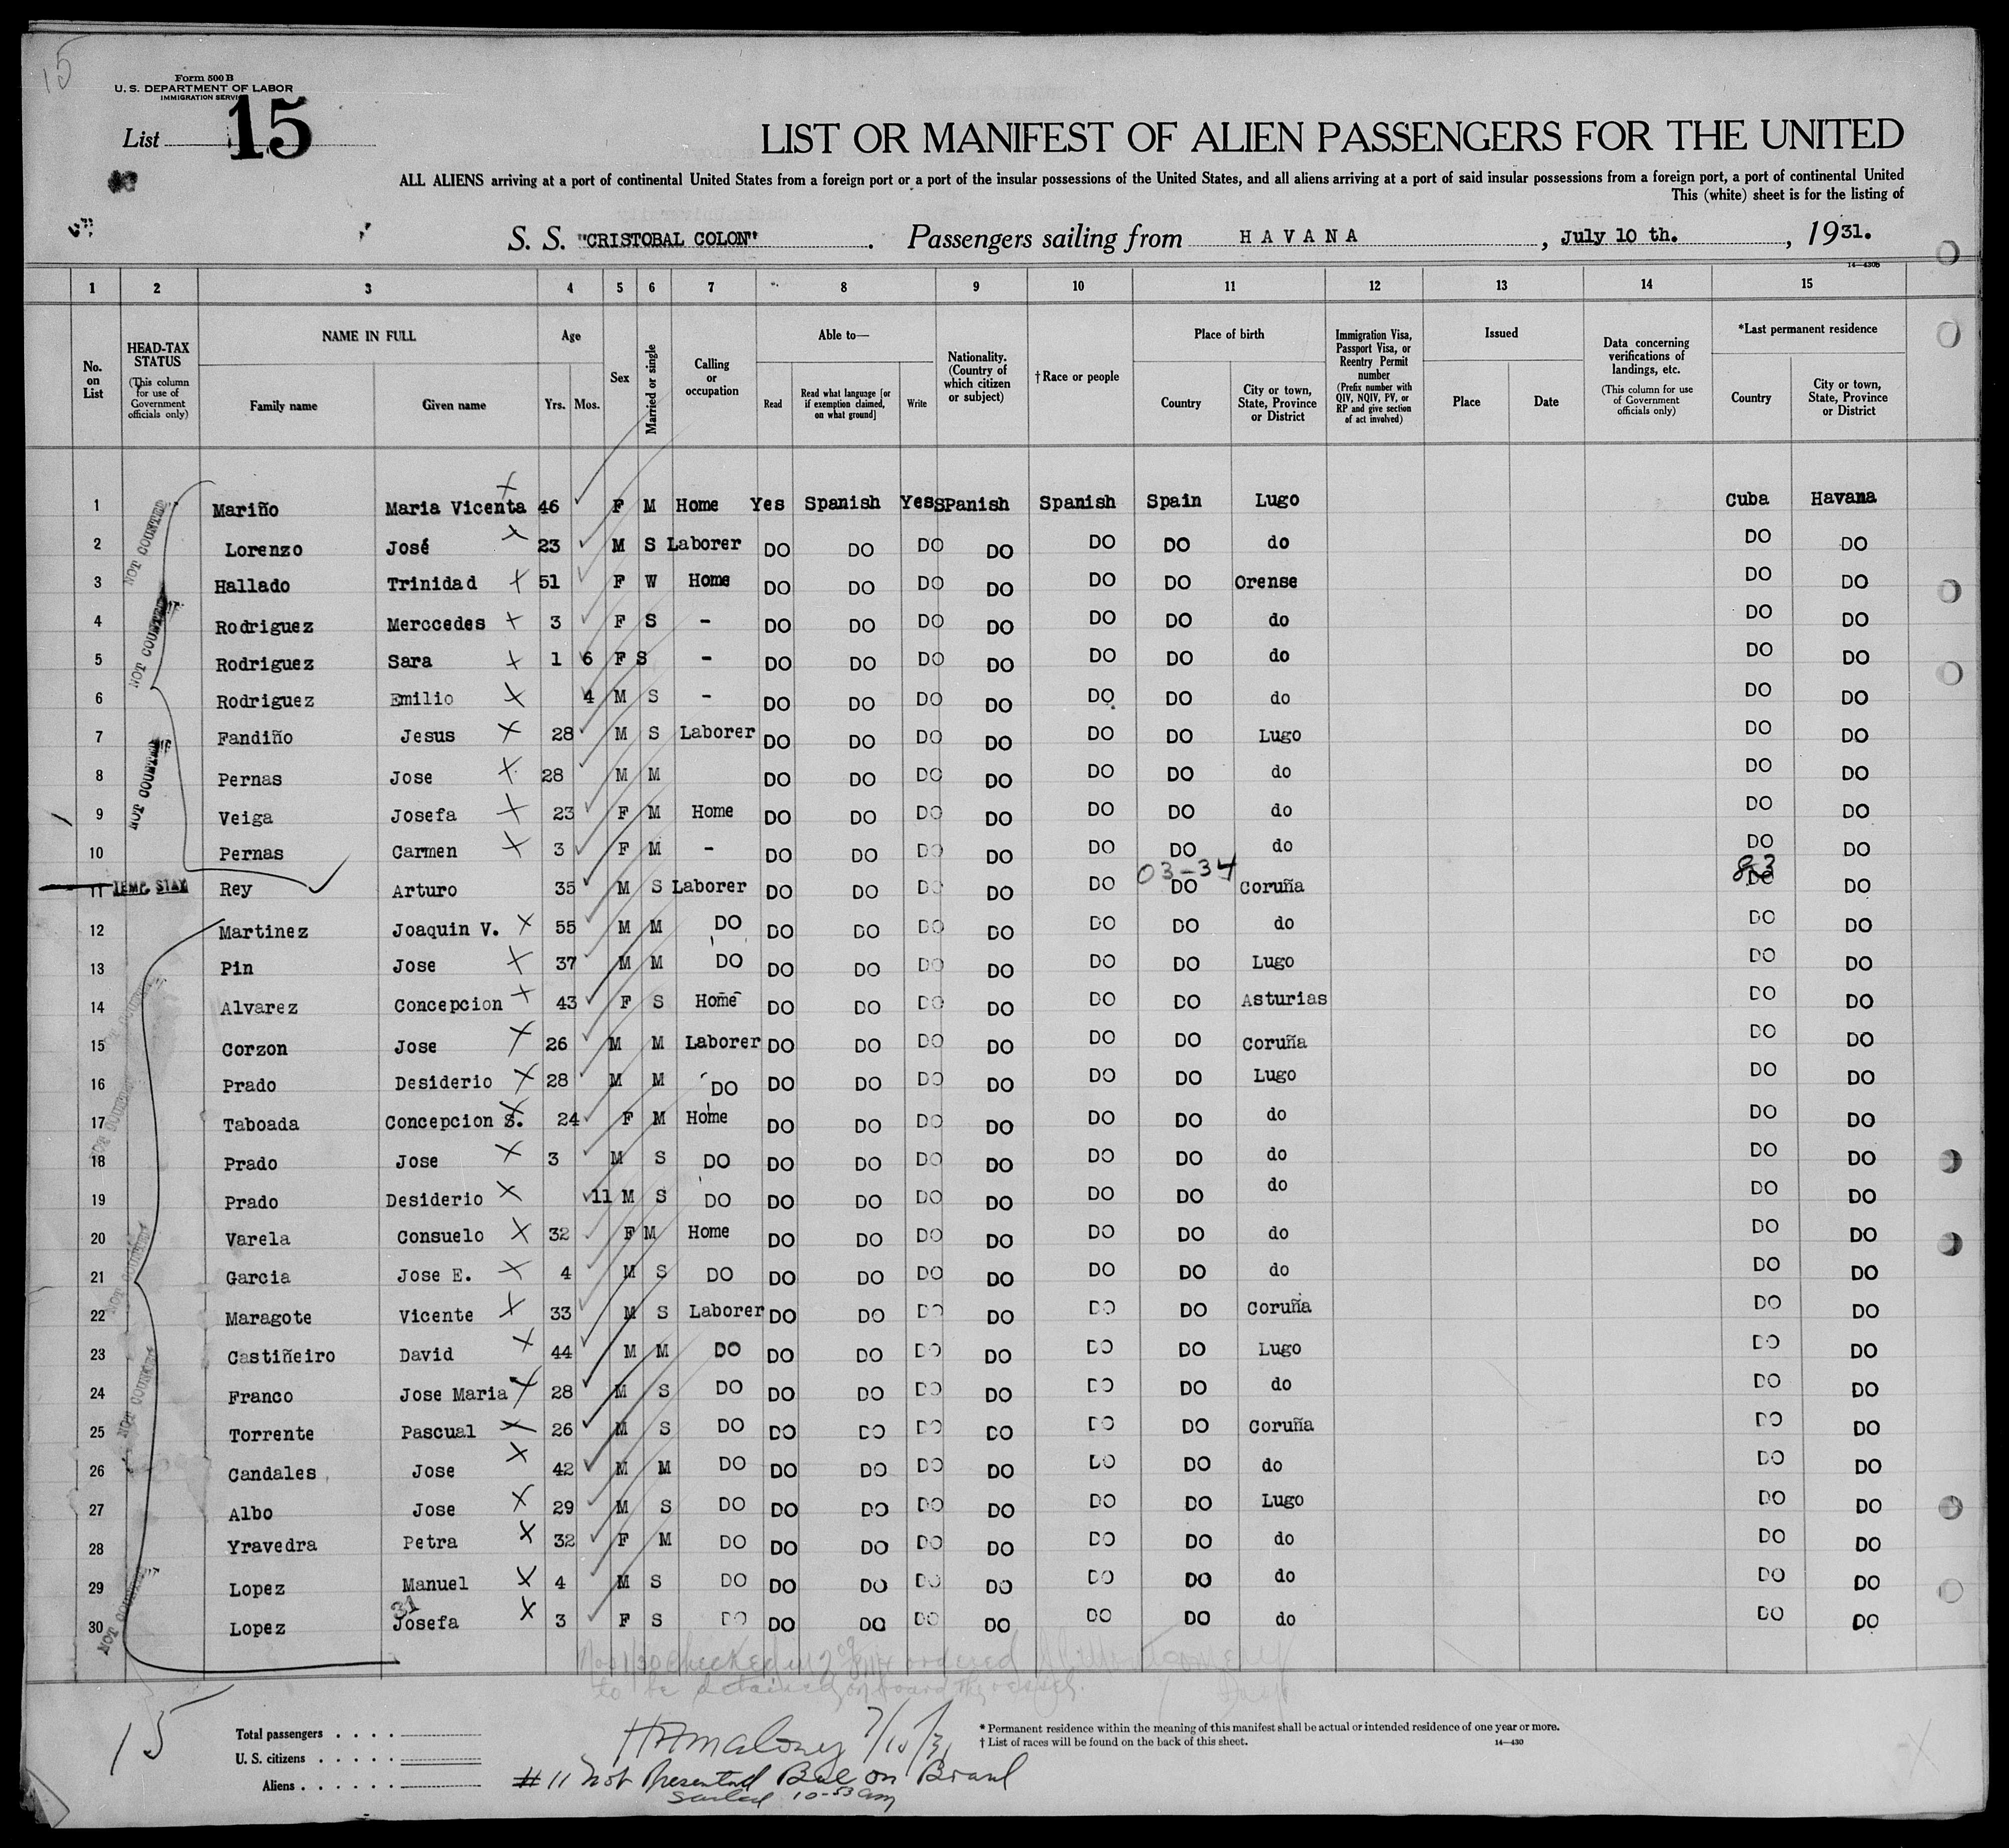 15
Form 500 B
U. S. DEPARTMENT OF LABOR
IMMIGRATION SERVICE
List 15
LIST OR MANIFEST OF ALIEN PASSENGERS FOR THE UNITED
ALL ALIENS arriving at a port of continental United States from a foreign port or a port of the insular possessions of the United States, and all aliens arriving at a port of said insular possessions from a foreign port, a port of continental United
This (white) sheet is for the listing of
S. S. "CRISTOBAL COLON". Passengers sailing from HAVANA, July 10 th., 1931.
14—430B
1 2 3 4 5 6 7 8 9 10 11 12 13 14 15
No. on List
HEAD-TAX STATUS (This column for use of Government officials only)
NAME IN FULL Family name Given name
Age Yrs. Mos.
Sex
Married or single
Calling or occupation
Able to— Read Read what language [or if exemption claimed, on what ground] Write
Nationality. (Country of which citizen or subject)
†Race or people
Place of birth Country City or town, State, Province or District
Immigration Visa, Passport Visa, or Reentry Permit number (Prefix number with QIV, NQIV, PV, or RP and give section of act involved)
Issued Place Date
Data concerning verifications of landings, etc. (This column for use of Government officials only)
*Last permanent residence Country City or town, State, Province or District
1 Mariño Maria Vicenta 46 F M Home Yes Spanish Yes SPanish Spanish Spain Lugo Cuba Havana
2 Lorenzo José 23 M S Laborer DO DO DO DO DO DO do DO DO
3 Hallado Trinidad 51 F W Home DO DO DO DO DO DO Orense DO DO
4 Rodriguez Merccedes 3 F S - DO DO DO DO DO DO do DO DO
5 Rodriguez Sara 1 6 F S - DO DO DO DO DO DO do DO DO
6 Rodriguez Emilio 4 M S - DO DO DO DO DO DO do DO DO
7 Fandiño Jesus 28 M S Laborer DO DO DO DO DO DO Lugo DO DO
8 Pernas Jose 28 M M DO DO DO DO DO DO do DO DO
9 Veiga Josefa 23 F M Home DO DO DO DO DO DO do DO DO
10 Pernas Carmen 3 F M - DO DO DO DO DO DO do DO DO
03-34 83
11 TEMP. STAY Rey Arturo 35 M S Laborer DO DO DO DO DO DO Coruña DO DO
12 Martinez Joaquin V. 55 M M DO DO DO DO DO DO DO do DO DO
13 Pin Jose 37 M M DO DO DO DO DO DO DO Lugo DO DO
14 Alvarez Concepcion 43 F S Home DO DO DO DO DO DO Asturias DO DO
15 Corzon Jose 26 M M Laborer DO DO DO DO DO DO Coruña DO DO
16 Prado Desiderio 28 M M DO DO DO DO DO DO DO Lugo DO DO
17 Taboada Concepcion S. 24 F M Home DO DO DO DO DO DO do DO DO
18 Prado Jose 3 M S DO DO DO DO DO DO DO do DO DO
19 Prado Desiderio 11 M S DO DO DO DO DO DO DO do DO DO
20 Varela Consuelo 32 F M Home DO DO DO DO DO DO do DO DO
21 Garcia Jose E. 4 M S DO DO DO DO DO DO DO do DO DO
22 Maragote Vicente 33 M S Laborer DO DO DO DO DO DO Coruña DO DO
23 Castiñeiro David 44 M M DO DO DO DO DO DO DO Lugo DO DO
24 Franco Jose Maria 28 M S DO DO DO DO DO DO DO do DO DO
25 Torrente Pascual 26 M S DO DO DO DO DO DO DO Coruña DO DO
26 Candales Jose 42 M M DO DO DO DO DO DO DO do DO DO
27 Albo Jose 29 M S DO DO DO DO DO DO DO Lugo DO DO
28 Yravedra Petra 32 F M DO DO DO DO DO DO DO do DO DO
29 Lopez Manuel 4 M S DO DO DO DO DO DO DO do DO DO
31
30 Lopez Josefa 3 F S DO DO DO DO DO DO DO do DO DO
NOT COUNTED
NOT COUNTED
NOT COUNTED
NOT COUNTED
NOT COUNTED
NOT COUNTED
NOT COUNTED
NOT COUNTED
Nos 1/30 Checked ordered
to be detained on board the vessel.
15
Total passengers
U. S. citizens
Aliens
7/10/31
* Permanent residence within the meaning of this manifest shall be actual or intended residence of one year or more.
† List of races will be found on the back of this sheet.
14—430
#11 Not Presented Bul on Board
Sailed 10-53 am